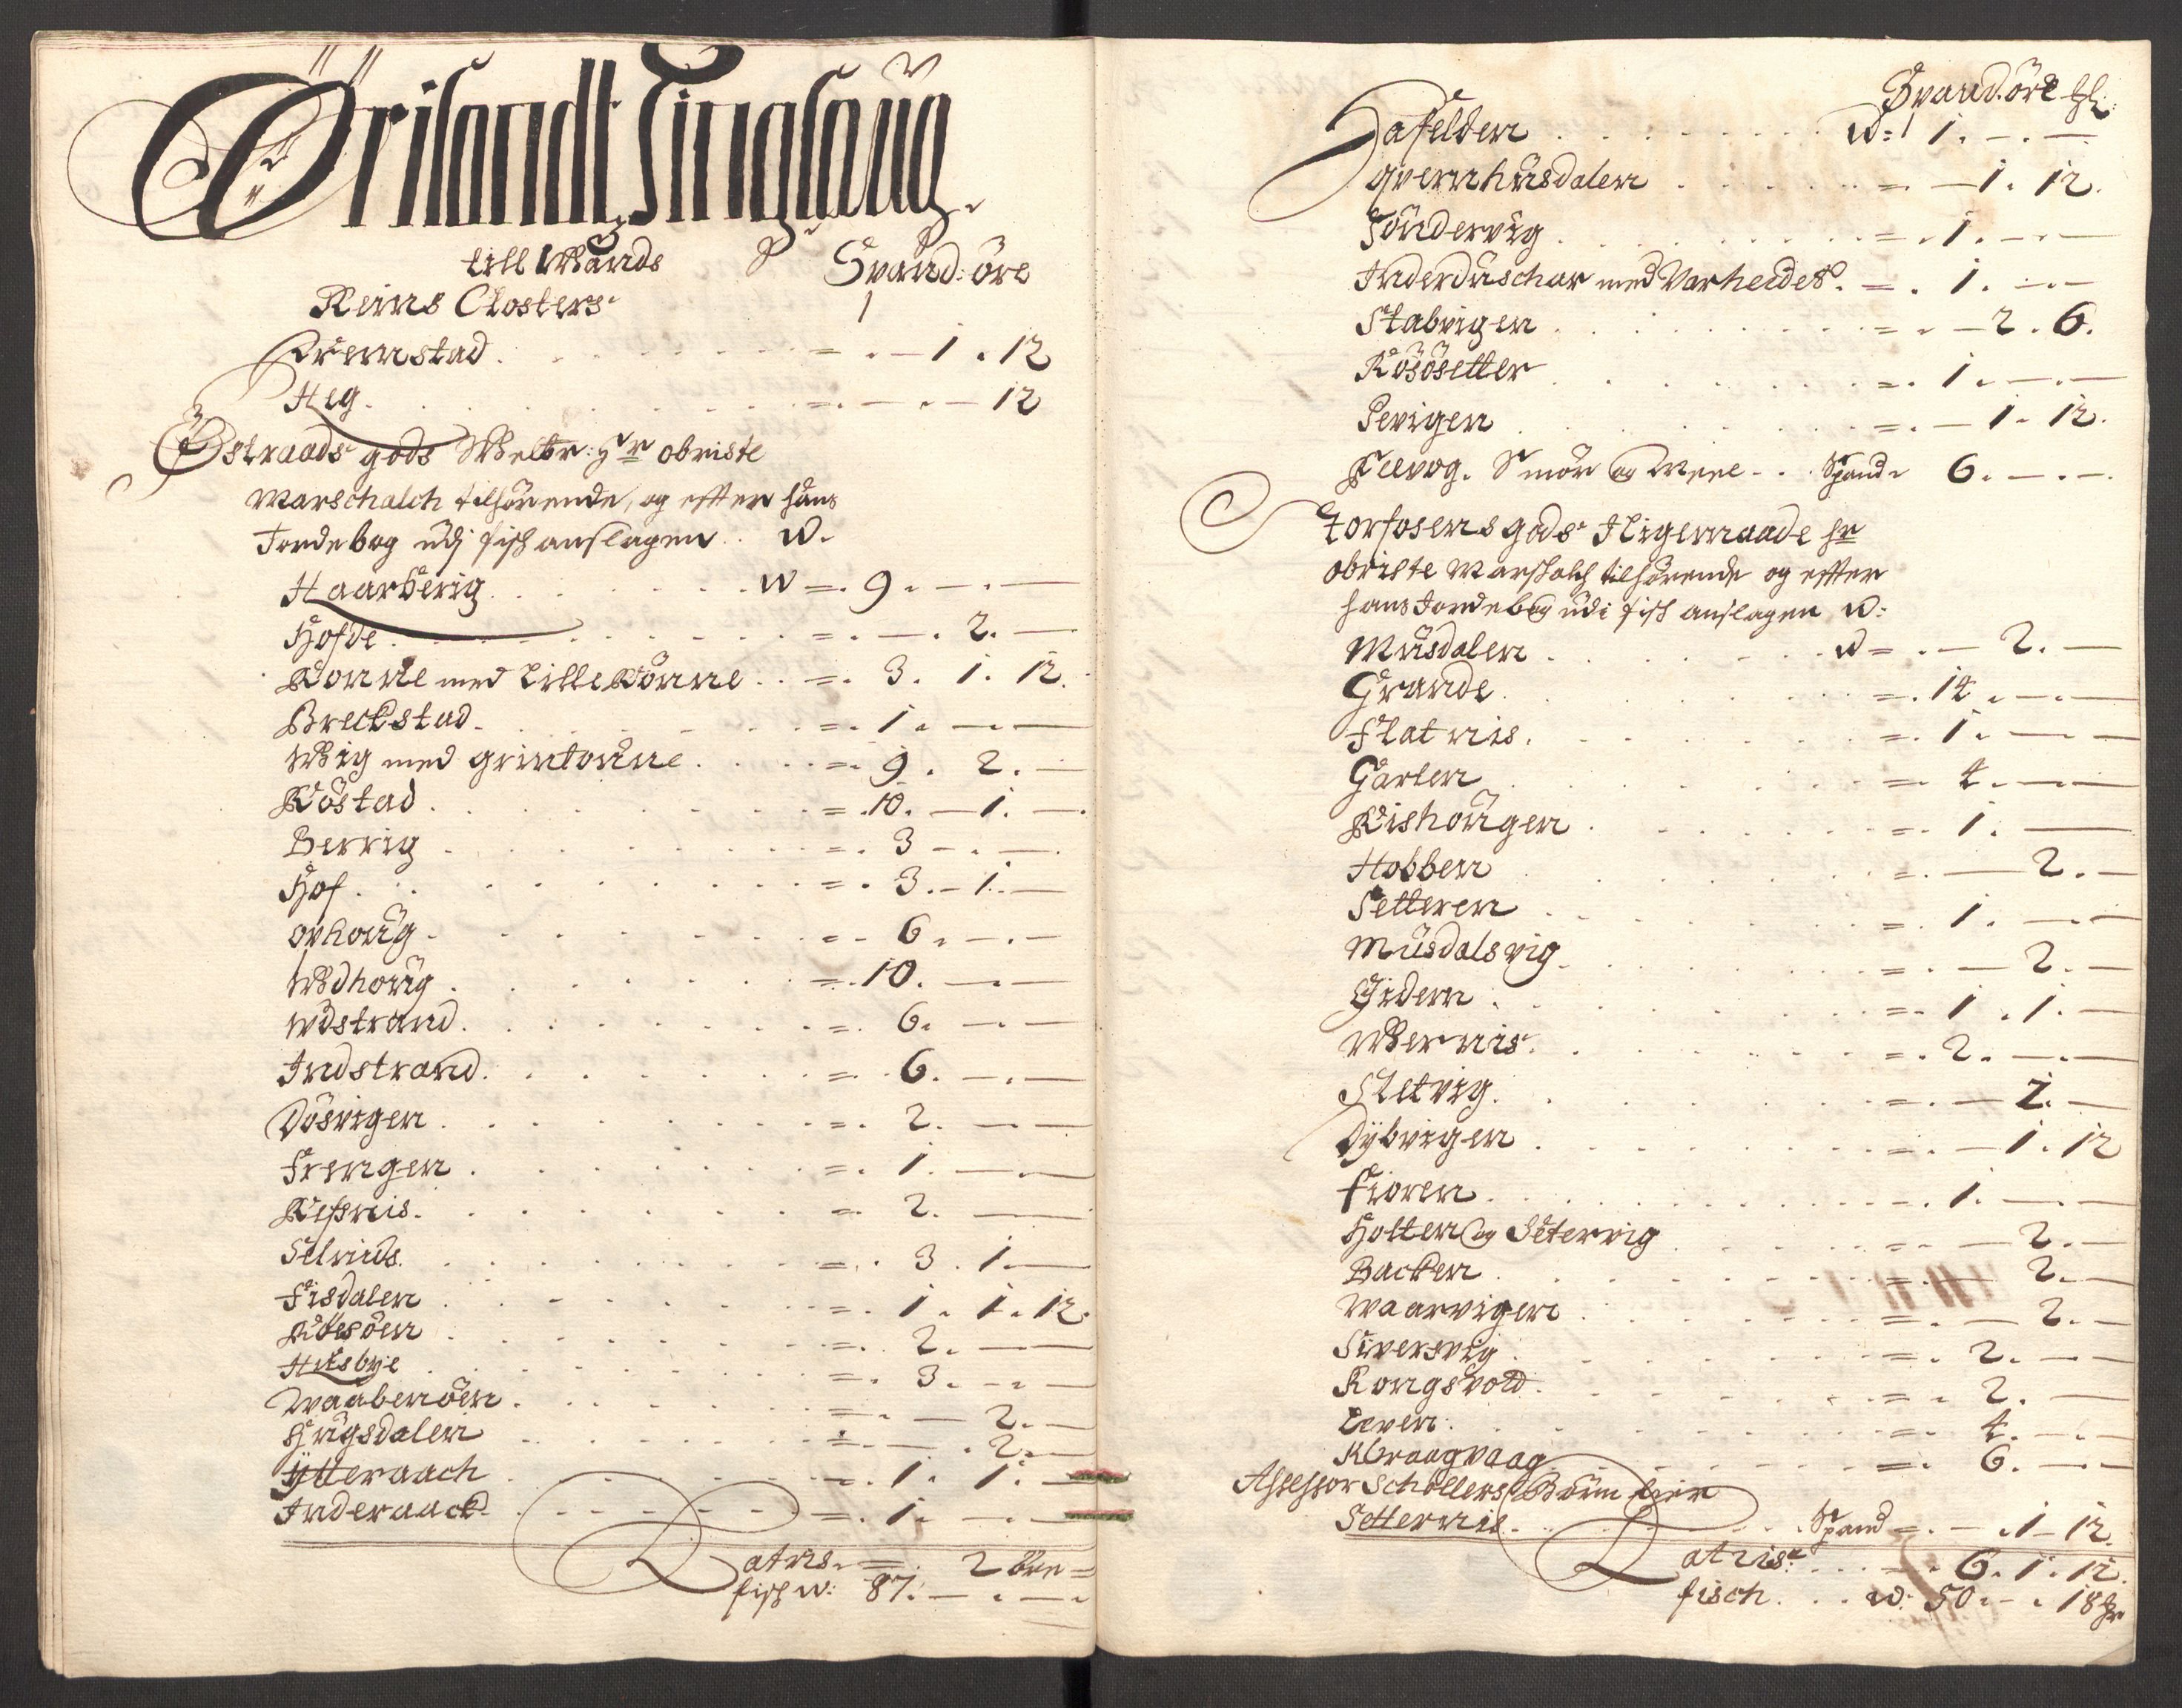 Ørlandt Tinglaug
till Mands Spand: öre
Reins Closters
Opremstad = . — 1 . 12
Heg = . — . — 12
Östraads gods Welbr: Hr obriste
Marschalch tilhörende, og effter hans
Jordebog udj fisk anslagen W.
Haarberig W = . 9 . — . —
Hofde = . — . 2. —
Rønne med Lille Rønne = . 3 . 1 . 12.
Breckstad = . 1 . — . —
Wiig med grintönne = 9 . 2 . —
Röstad = . 10. — 1. — .
Berrig = . 3 — . — .
Hof = . 3. — 1. —
ovhoug = . 6 . — . —
Wdhoug = . 10. — . —
Wdstrand = . 6. — . —
Indstrand = . 6. — . —
Dösvigen = . 2. — . —
Frengen = . 1. — . —
Refsnis = . 2. — . —
Selnis = . 3 . 1. —
Fisdalen = . 1 . 1 . 12.
= . 2. — . —
Husbye = . 3. — . —
Waabenöen = . — 2. —
Hugsdalen = . — . 2. —
Ytteraach = . 1 . 1. —
Inderaach = . 1. — . —
Latris = 2 öre =
fisk W: 87. — . — .
Spand. öre
Hafelden W: 1 1. — . —
qvernhusdalen = . — 1 . 12.
Söndervig = . 1. — . —
Inderduschar med Varheidet = . 1. — . —
Stabvigen = . — 2 . 6.
Rösösetter = . 1 . — . —
Sevigen = . — 1 . 12.
Smör og Meel Spand 6. — . — .
Storfosens gods I ligemaade hr
obriste Marschalch tilhörende og effter
hans Jordebog udi fisk anslagen W:
Musdalen W = . — 2. —
Grande = . 14 . — . —
Flatnis = . 1 . — . —
Garten = . 4 . — . —
Rishougen = . 1. —
Hobben = . — 2. —
Setteren = . 1. — . —
Musdalsvig = . — 2. —
Giden = . 1 . 1. —
Wernis = . 2. — . —
Sletvig = . — 2. —
Dybvigen = . — 1 . 12
Fioren = . 1. — . —
Holten og Setervig = . — 2. —
Backen = . — 2. —
Waarvigen = . — 2. —
Siversvig = . 2. — . —
Kongsvold = . 2. —
Leren = 4. — . —
Kraagvaag = . 6. — . —
Assessor Schöllers Börn eier
Setternis Spand = . — . 1 — 12.
Latris = . 6. 1 . 12.
fisch W: 50. — . 18